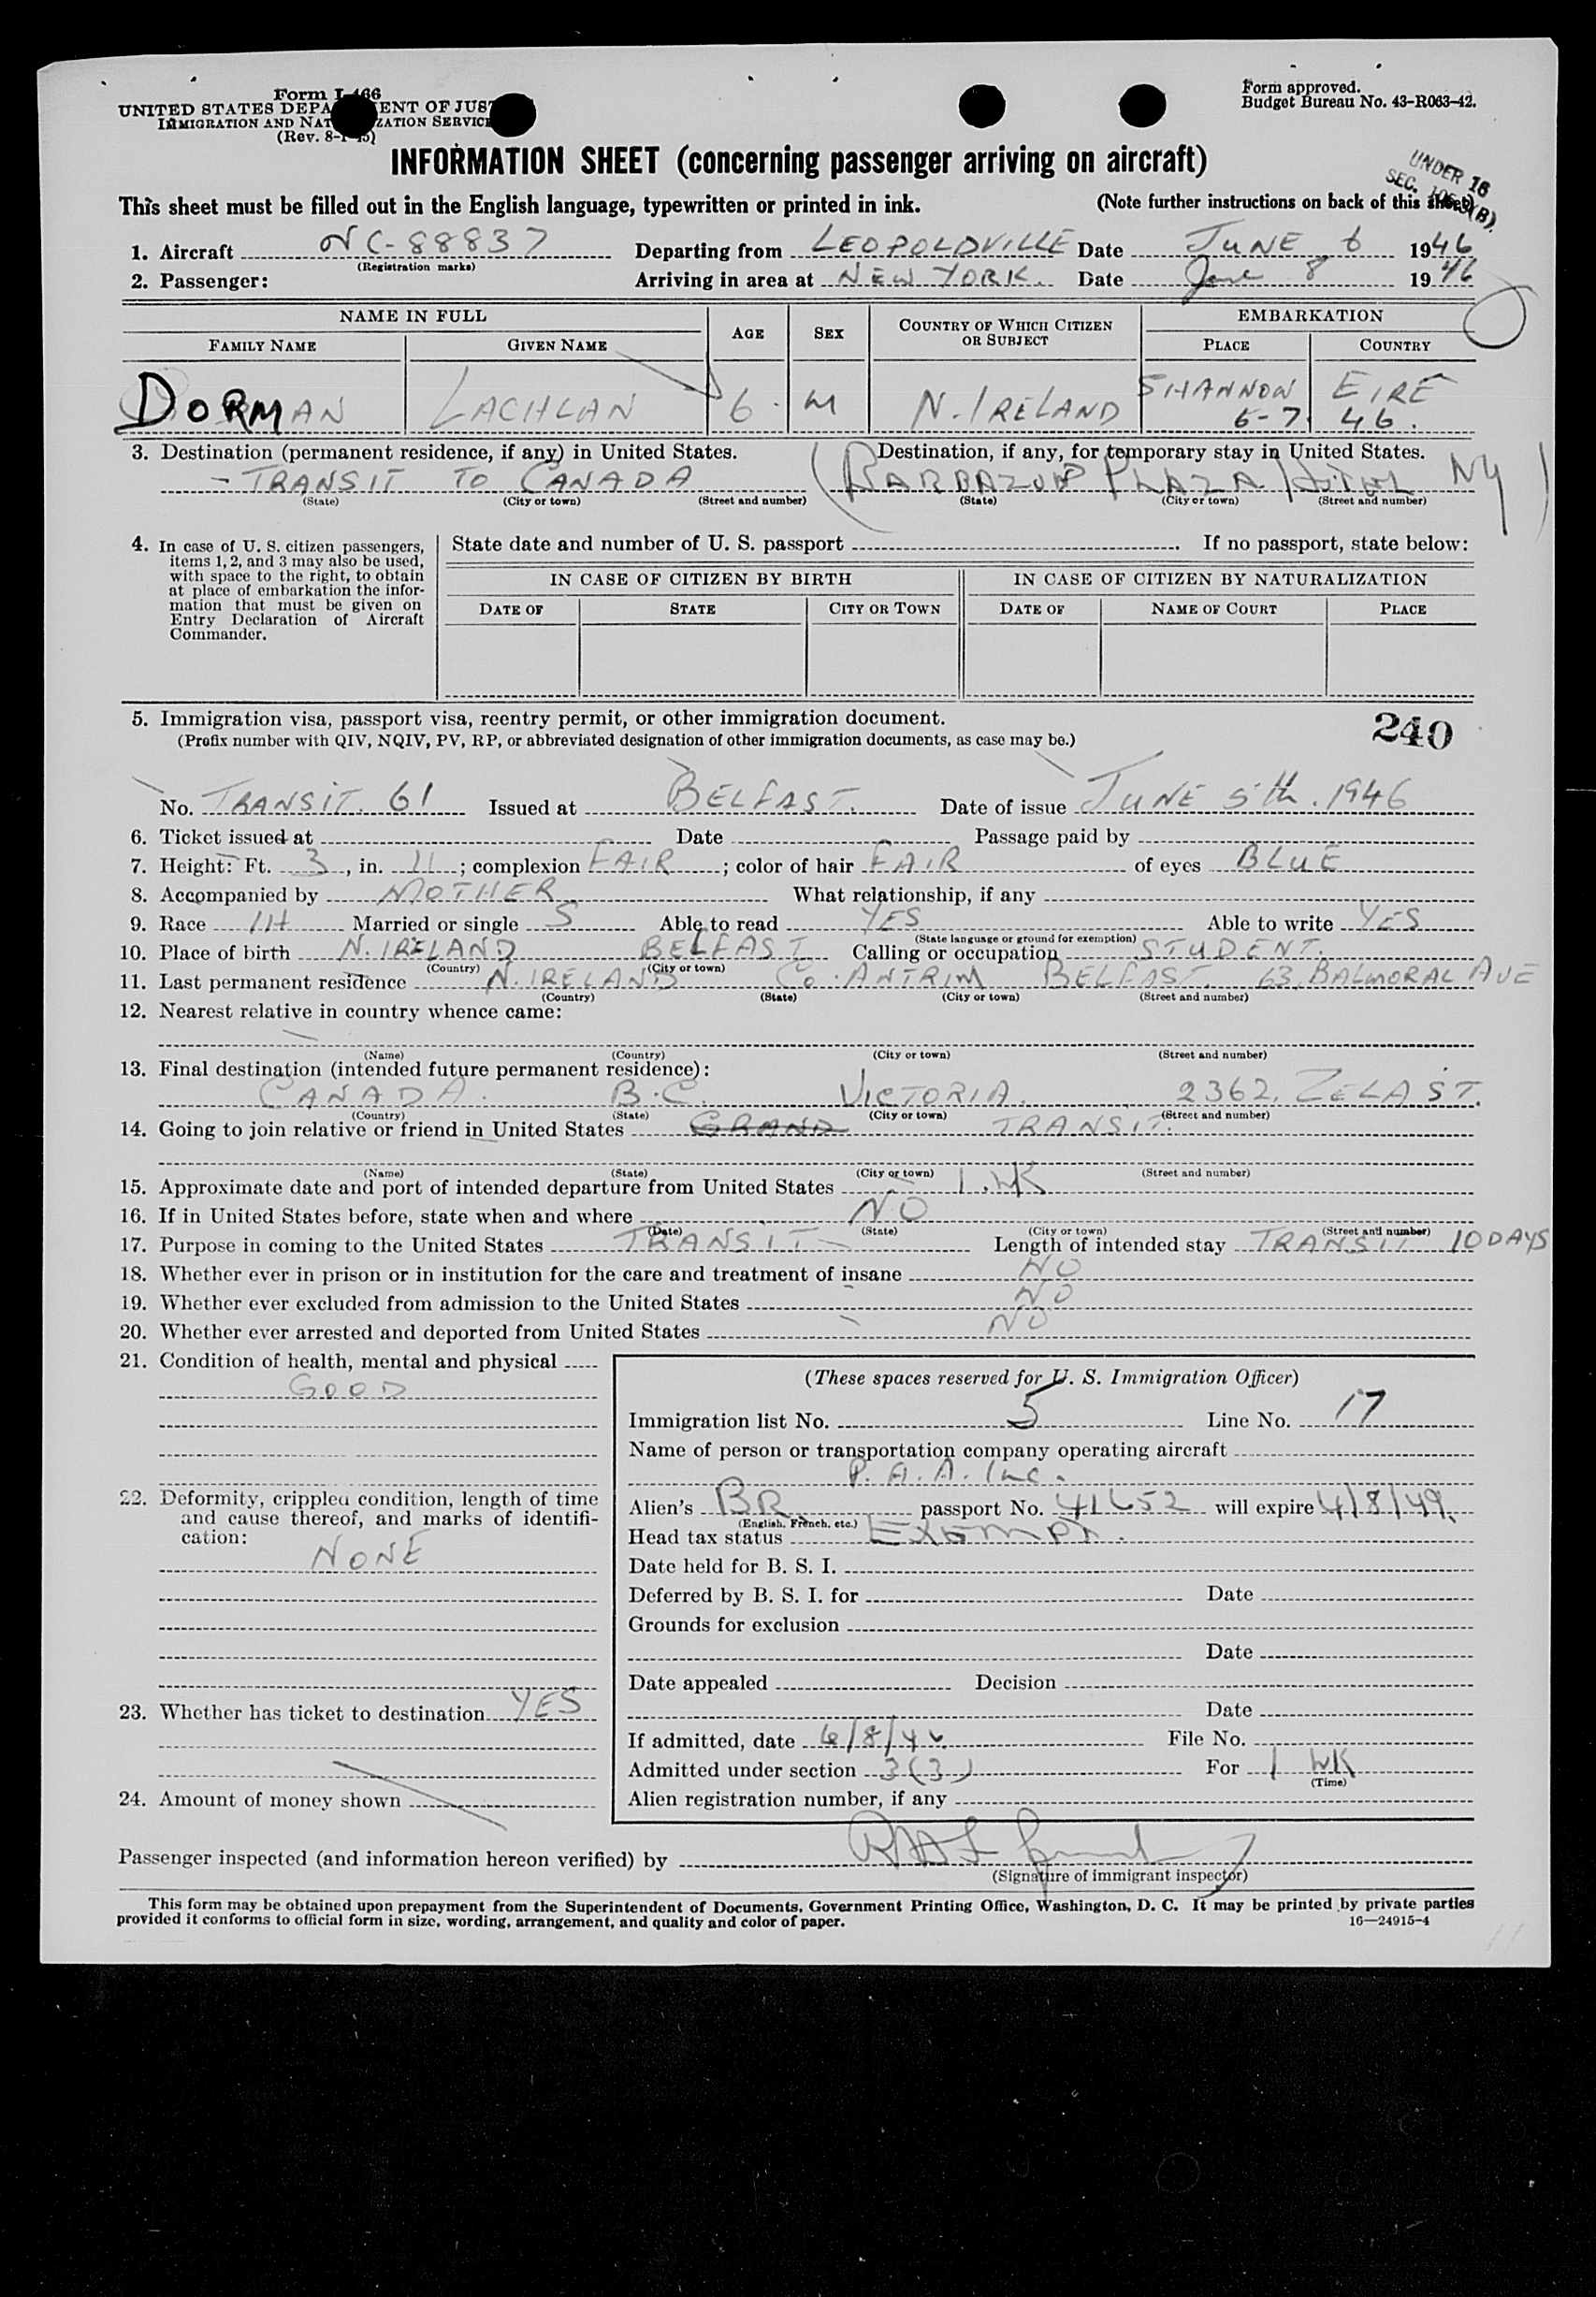 Form I-466
UNITED STATES DEPA ENT OF JUS
IMMIGRATION AND NAT ZATION SERVICE
(Rev. 8-1-45)
Form approved.
Budget Bureau No. 43-R063-42.
INFORMATION SHEET (concerning passenger arriving on aircraft)
UNDER 16
SEC. (B).
This sheet must be filled out in the English language, typewritten or printed in ink. (Note further instructions on back of this sheet)
1. Aircraft NC-88837 Departing from LEOPOLDVILLE Date JUNE 6 1946
(Registration marks)
2. Passenger: Arriving in area at NEW YORK. Date June 8 1946
NAME IN FULL AGE SEX COUNTRY OF WHICH CITIZEN OR SUBJECT EMBARKATION
FAMILY NAME GIVEN NAME PLACE COUNTRY
DORMAN LACHLAN 6 M N. IRELAND SHANNON EIRE
6-7 46.
3. Destination (permanent residence, if any) in United States. Destination, if any, for temporary stay in United States.
- TRANSIT TO CANADA (BARBAZON PLAZA HOTEL NY)
(State) (City or town) (Street and number) (State) (City or town) (Street and number)
4. In case of U. S. citizen passengers, items 1, 2, and 3 may also be used, with space to the right, to obtain at place of embarkation the information that must be given on Entry Declaration of Aircraft Commander.
State date and number of U. S. passport . If no passport, state below:
IN CASE OF CITIZEN BY BIRTH IN CASE OF CITIZEN BY NATURALIZATION
DATE OF STATE CITY OR TOWN DATE OF NAME OF COURT PLACE
5. Immigration visa, passport visa, reentry permit, or other immigration document.
(Prefix number with QIV, NQIV, PV, RP, or abbreviated designation of other immigration documents, as case may be.)
240
No. TRANSIT. 61 Issued at BELFAST. Date of issue JUNE 5th. 1946
6. Ticket issued at Date Passage paid by
7. Height: Ft. 3, in. 11; complexion FAIR; color of hair FAIR of eyes BLUE
8. Accompanied by MOTHER What relationship, if any
9. Race IH Married or single S Able to read YES Able to write YES
(State language or ground for exemption)
10. Place of birth N. IRELAND BELFAST Calling or occupation STUDENT.
(Country) (City or town)
11. Last permanent residence N. IRELAND Co. ANTRIM BELFAST. 63, BALMORAL AVE
(Country) (State) (City or town) (Street and number)
12. Nearest relative in country whence came:
(Name) (Country) (City or town) (Street and number)
13. Final destination (intended future permanent residence):
CANADA. B.C. VICTORIA. 2362, ZELA ST.
(Country) (State) (City or town) (Street and number)
14. Going to join relative or friend in United States GRAND TRANSIT.
(Name) (State) (City or town) (Street and number)
15. Approximate date and port of intended departure from United States 1. WK
16. If in United States before, state when and where NO
(Date) (State) (City or town) (Street and number)
17. Purpose in coming to the United States TRANSIT Length of intended stay TRANSIT 10 DAYS
18. Whether ever in prison or in institution for the care and treatment of insane NO
19. Whether ever excluded from admission to the United States NO
20. Whether ever arrested and deported from United States NO
21. Condition of health, mental and physical
GOOD
22. Deformity, crippled condition, length of time and cause thereof, and marks of identification:
NONE
23. Whether has ticket to destination YES
24. Amount of money shown
(These spaces reserved for U. S. Immigration Officer)
Immigration list No. 5 Line No. 17
Name of person or transportation company operating aircraft
P. A. A. Inc.
Alien's BR passport No. 41652 will expire 4/8/49.
(English, French, etc.)
Head tax status Exempt.
Date held for B. S. I.
Deferred by B. S. I. for Date
Grounds for exclusion
Date
Date appealed Decision
Date
If admitted, date 6/8/46 File No.
Admitted under section 3(3) For 1 WK
(Time)
Alien registration number, if any
Passenger inspected (and information hereon verified) by
(Signature of immigrant inspector)
This form may be obtained upon prepayment from the Superintendent of Documents, Government Printing Office, Washington, D. C. It may be printed by private parties
provided it conforms to official form in size, wording, arrangement, and quality and color of paper. 16—24915-4